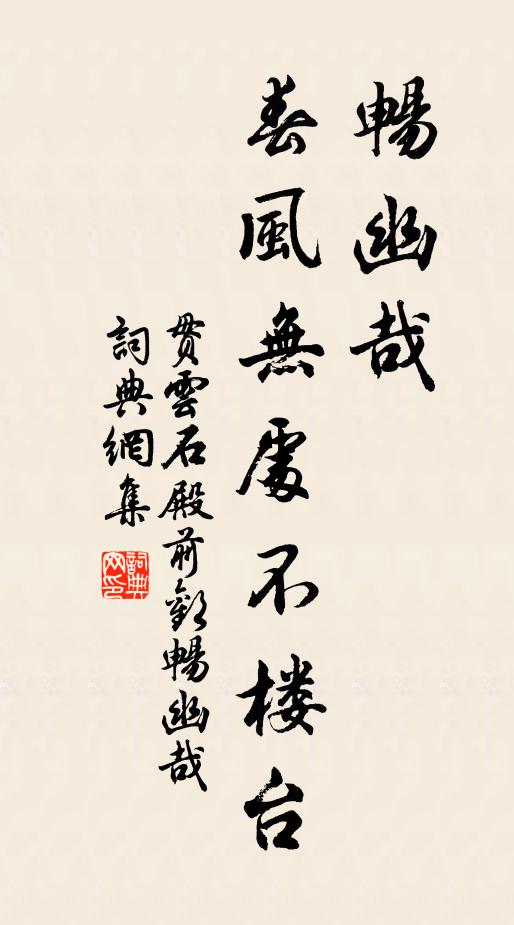 暢幽哉
春風無處不楼台
貫雲石殿前歡暢幽哉
詞典網集
詞典網印